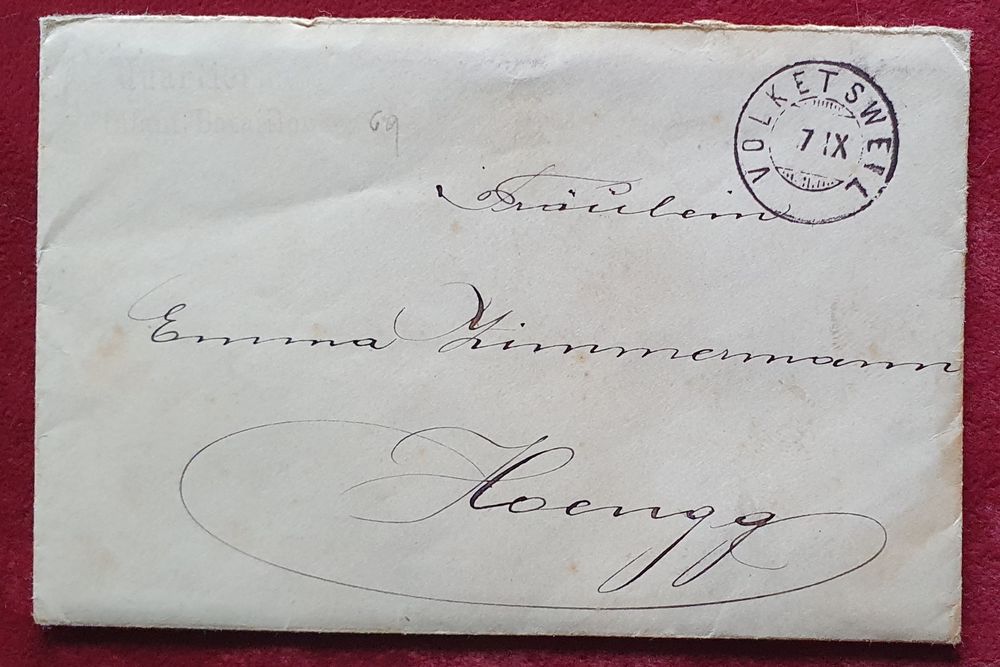 VOLKETSWEIL
7 IX
69
Fräulein
Emma Zimmermann
Hoengg